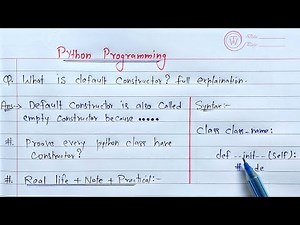 Python Programming
Q. What is default constructor? full explaination.
Ans→ Default constructor is also called
empty constructor because .....
#. Proove every python class have
constructor?
#. Real life + Note + Practical:-
Syntax:-
class class-name:
def __init__(self):
#